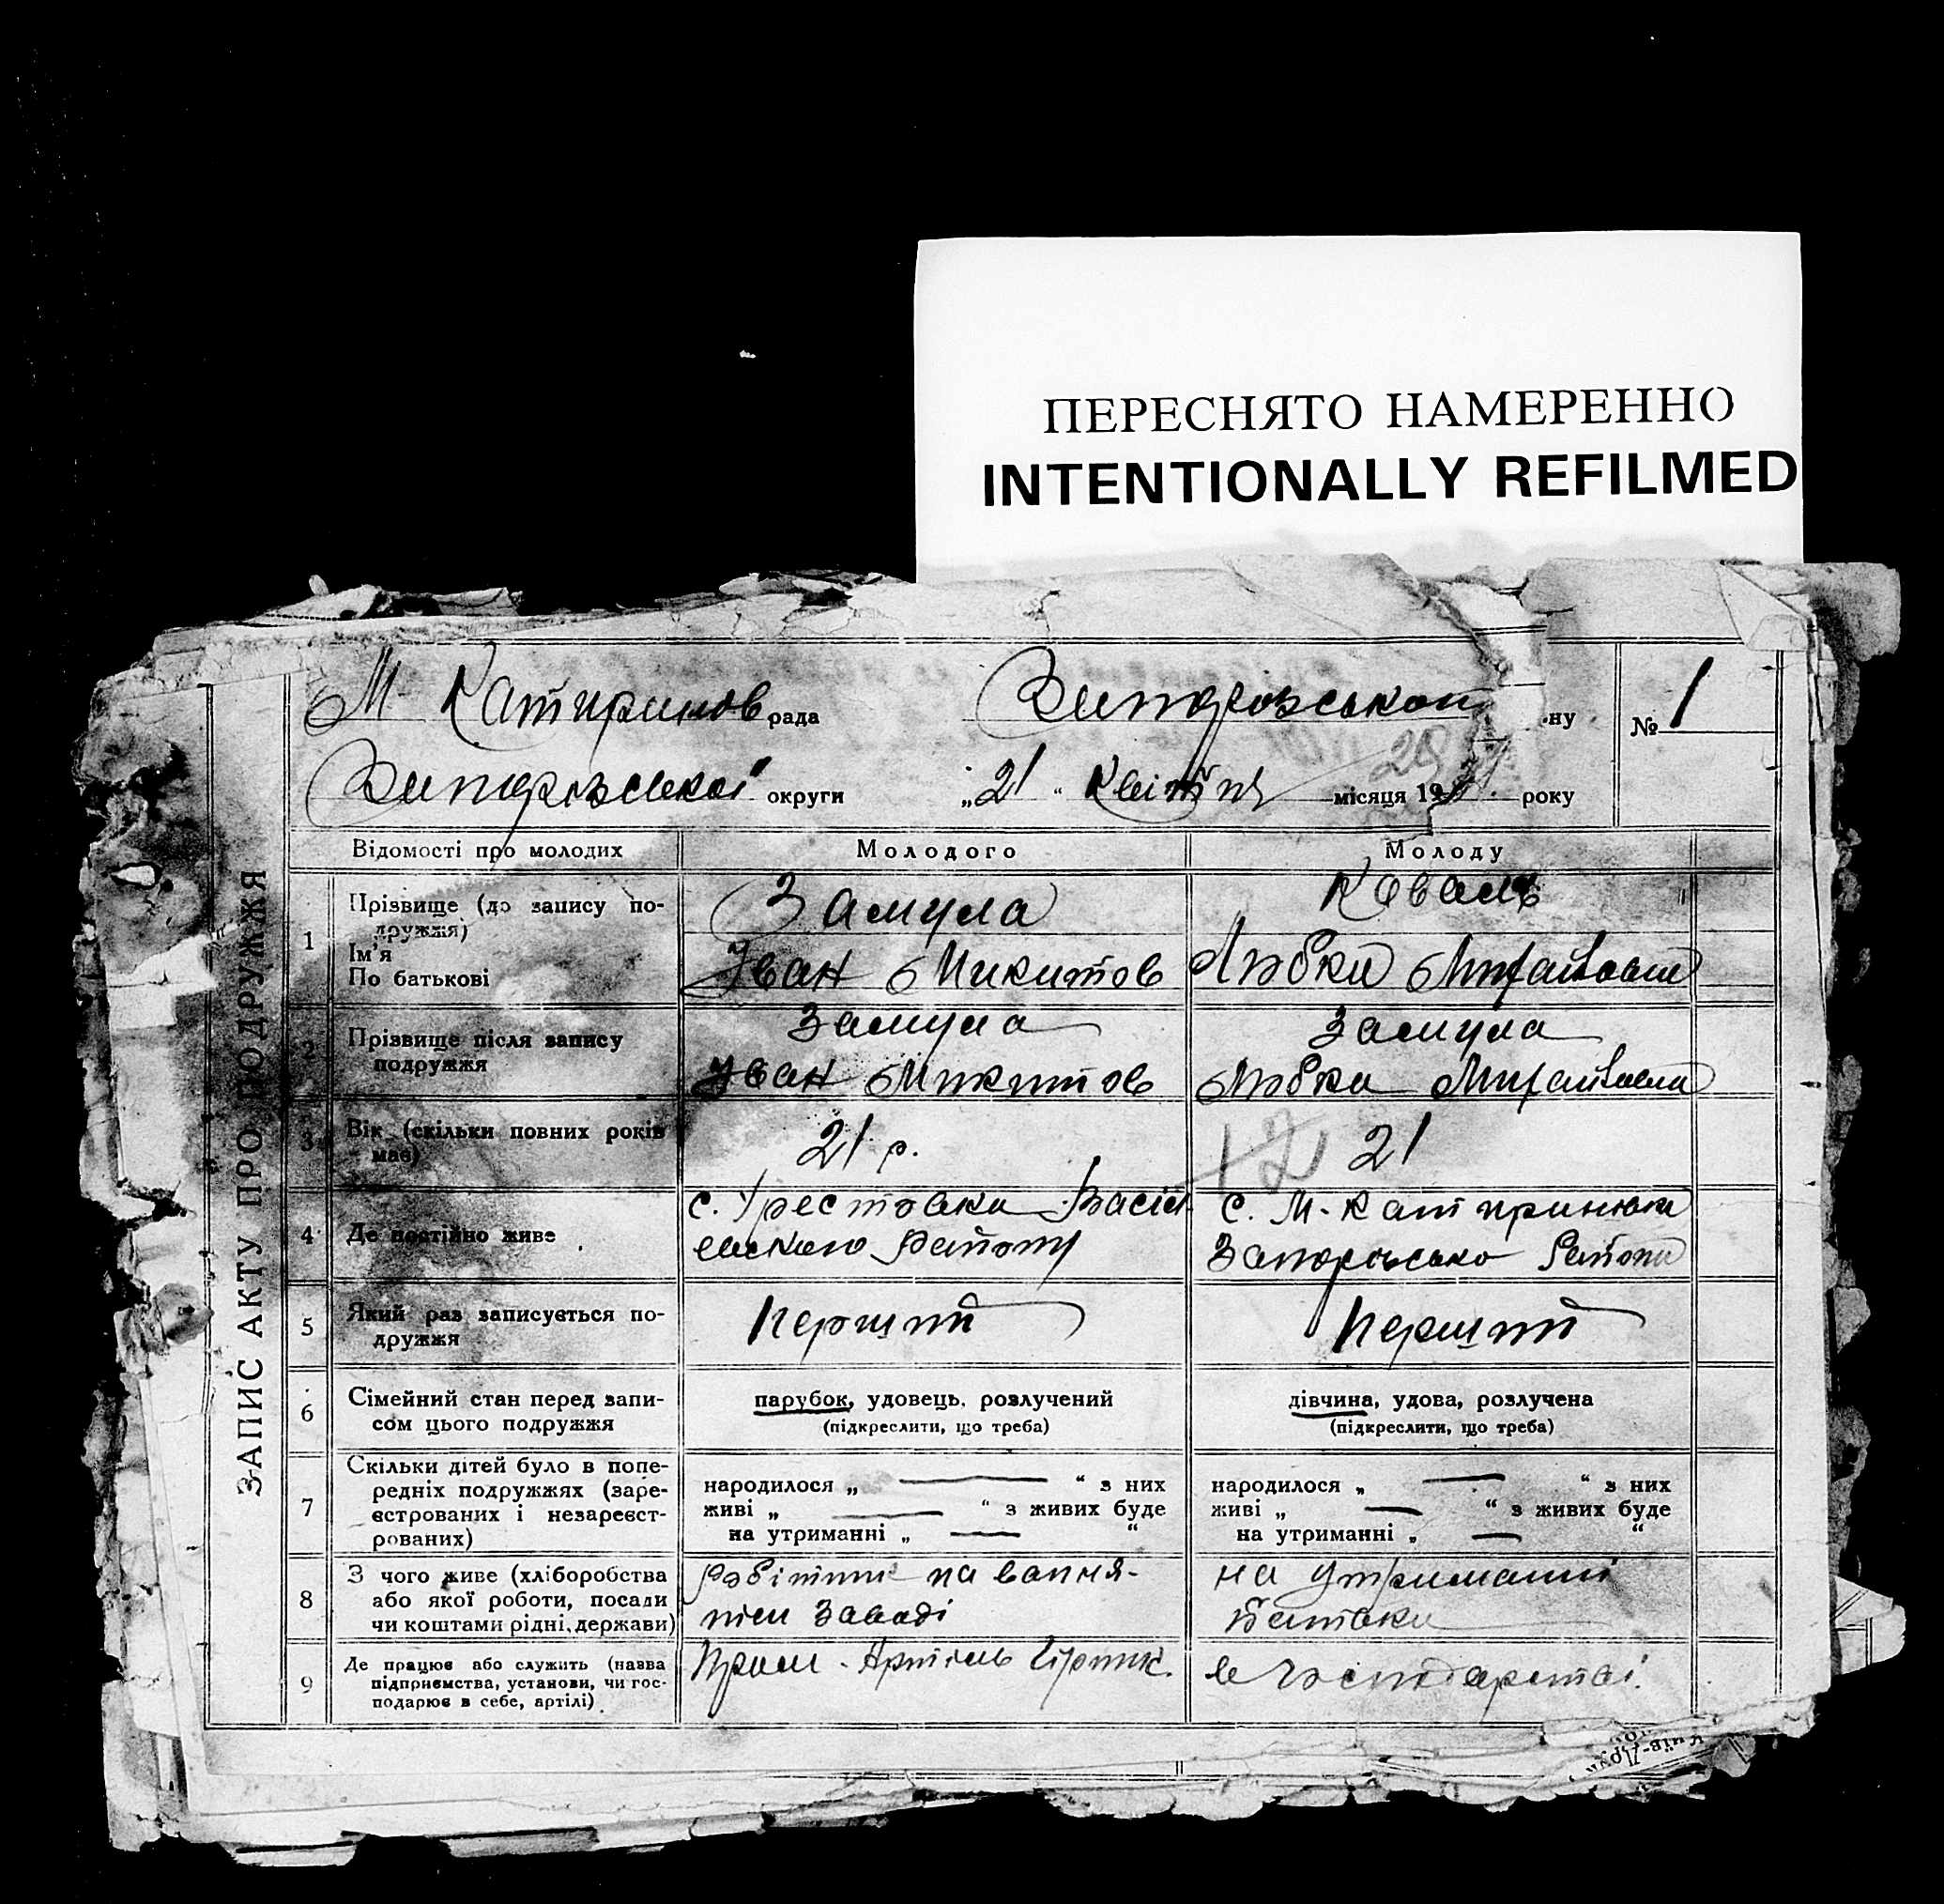 ПЕРЕСНЯТО НАМЕРЕННО
INTENTIONALLY REFILMED
М- Катиринов рада Запорозськоп ну № 1
Запорозської округи „21“ Квітня місяця 19 року
ЗАПИС АКТУ ПРО ПОДРУЖЖЯ
Відомості про молодих Молодого Молоду
1 Прізвище (до запису по-
дружжя)
Ім'я
По батькові
Замула
Іван Микитов
Коваль
Любка Михайловна
2 Прізвище після запису
подружжя
Замула
Іван Микитов
Замула
Любка Михайловна
3 Вік (скільки повних років
має)
21 р.
21
4 Де постійно живе
с. Хрестовка Васи
Району
с. М-Катириновка
Запорозсько Району
5 Який раз записується по-
дружжя
Перший
Перший
6 Сімейний стан перед запи-
сом цього подружжя
парубок, удовець, розлучений
(підкреслити, що треба)
дівчина, удова, розлучена
(підкреслити, що треба)
7 Скільки дітей було в попе-
редніх подружжях (заре-
єстрованих і незареєст-
рованих)
народилося „ — “ з них
живі „ — “ з живих буде
на утриманні „ — “
народилося „ — “ з них
живі „ — “ з живих буде
на утриманні „ — “
8 З чого живе (хліборобства
або якої роботи, посади
чи коштами рідні, держави)
на вапня-
нім заводі
на утриманні
Батька
9 Де працює або служить (назва
підприємства, установи, чи гос-
подарює в себе, артілі)
Пром-Артіль Гірник.
в Господарстві.